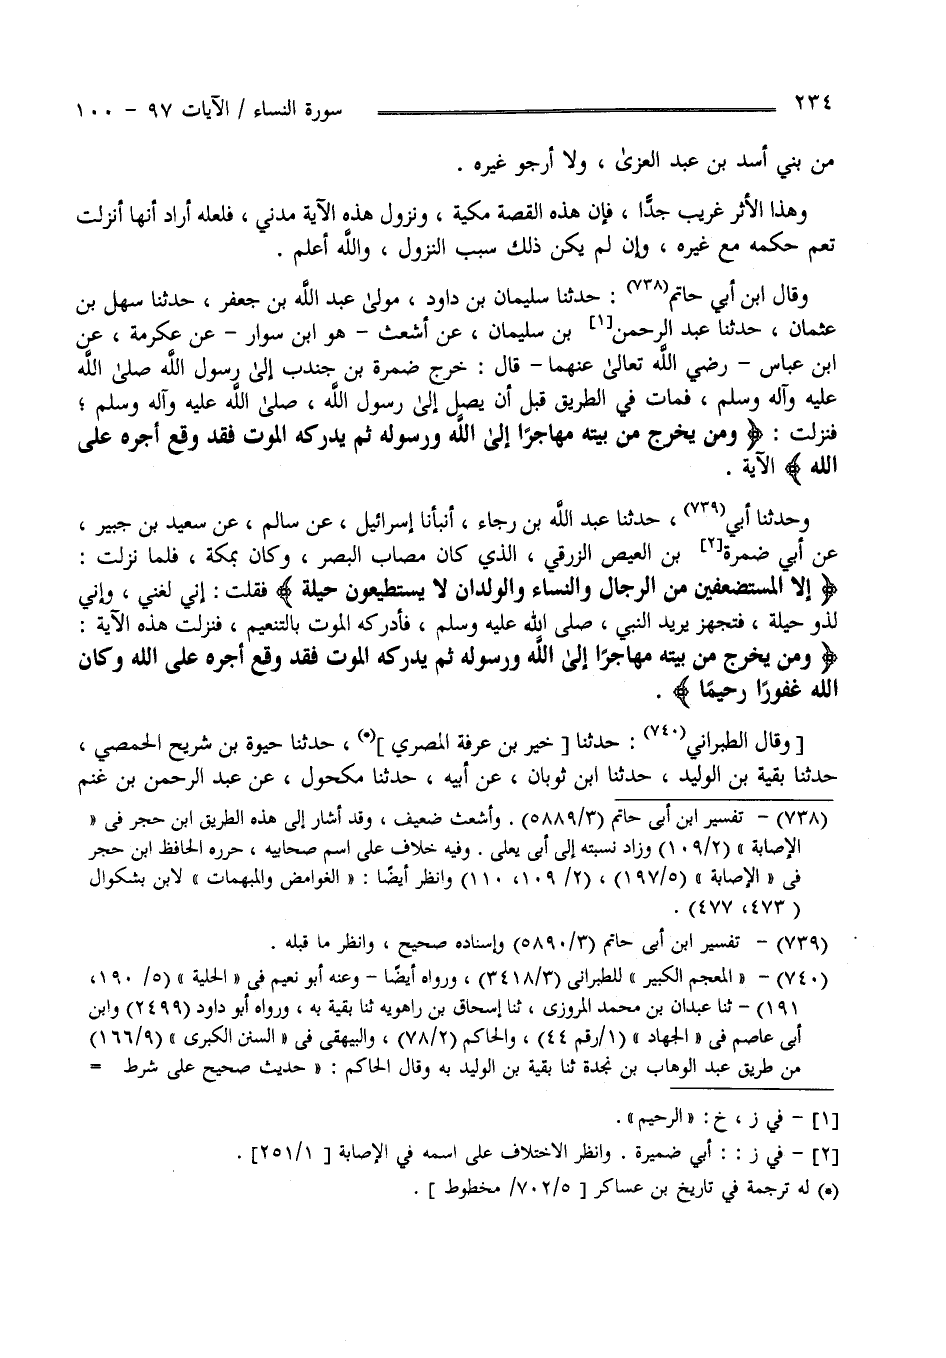 ٢٣٤ سورة النساء / الآيات ٩٧ - ١٠٠
من بني أسد بن عبد العزىٰ ، ولا أرجو غيره .
وهذا الأثر غريب جدًّا ، فإن هذه القصة مكية ، ونزول هذه الآية مدني ، فلعله أراد أنها أنزلت
تعم حكمه مع غيره ، وإن لم يكن ذلك سبب النزول ، واللَّه أعلم .
وقال ابن أبي حاتم(٧٣٨) : حدثنا سليمان بن داود ، مولىٰ عبد اللَّه بن جعفر ، حدثنا سهل بن
عثمان ، حدثنا عبد الرحمن[١] بن سليمان ، عن أشعث - هو ابن سوار - عن عكرمة ، عن
ابن عباس - رضي اللَّه تعالىٰ عنهما - قال : خرج ضمرة بن جندب إلىٰ رسول اللَّه صلىٰ اللَّه
عليه وآله وسلم ، فمات في الطريق قبل أن يصل إلىٰ رسول اللَّه ، صلىٰ اللَّه عليه وآله وسلم ؛
فنزلت : ﴿ ومن يخرج من بيته مهاجرًا إلىٰ اللَّه ورسوله ثم يدركه الموت فقد وقع أجره على
الله ﴾ الآية .
وحدثنا أبي(٧٣٩) ، حدثنا عبد اللَّه بن رجاء ، أنبأنا إسرائيل ، عن سالم ، عن سعيد بن جبير ،
عن أبي ضمرة[٢] بن العيص الزرقي ، الذي كان مصاب البصر ، وكان بمكة ، فلما نزلت :
﴿ إلا المستضعفين من الرجال والنساء والولدان لا يستطيعون حيلة ﴾ فقلت : إني لغني ، وإني
لذو حيلة ، فتجهز يريد النبي ، صلى الله عليه وسلم ، فأدركه الموت بالتنعيم ، فنزلت هذه الآية :
﴿ ومن يخرج من بيته مهاجرًا إلىٰ اللَّه ورسوله ثم يدركه الموت فقد وقع أجره على الله وكان
الله غفورًا رحيمًا ﴾ .
[ وقال الطبراني(٧٤٠) : حدثنا [ خير بن عرفة المصري ](•) ، حدثنا حيوة بن شريح الحمصي ،
حدثنا بقية بن الوليد ، حدثنا ابن ثوبان ، عن أبيه ، حدثنا مكحول ، عن عبد الرحمن بن غنم
(٧٣٨) - تفسير ابن أبى حاتم (٥٨٨٩/٣) . وأشعث ضعيف ، وقد أشار إلى هذه الطريق ابن حجر فى «
الإصابة » (١٠٩/٢) وزاد نسبته إلى أبى يعلى . وفيه خلاف على اسم صحابيه ، حرره الحافظ ابن حجر
فى « الإصابة » (١٩٧/٥) ، (٢/ ١٠٩، ١١٠) وانظر أيضًا : « الغوامض والمبهمات » لابن بشكوال
( ٤٧٣، ٤٧٧) .
(٧٣٩) - تفسير ابن أبى حاتم (٥٨٩٠/٣) وإسناده صحيح ، وانظر ما قبله .
(٧٤٠) - « المعجم الكبير » للطبرانى (٣٤١٨/٣) ، ورواه أيضًا - وعنه أبو نعيم فى « الحلية » (٥/ ١٩٠،
١٩١) - ثنا عبدان بن محمد المروزى ، ثنا إسحاق بن راهويه ثنا بقية به ، ورواه أبو داود (٢٤٩٩) وابن
أبى عاصم فى « الجهاد » (١/رقم ٤٤) ، والحاكم (٧٨/٢) ، والبيهقى فى « السنن الكبرى » (١٦٦/٩)
من طريق عبد الوهاب بن نجدة ثنا بقية بن الوليد به وقال الحاكم : « حديث صحيح على شرط =
[١] - في ز ، خ : « الرحيم» .
[٢] - في ز : : أبي ضميرة . وانظر الاختلاف على اسمه في الإصابة [ ٢٥١/١] .
(•) له ترجمة في تاريخ بن عساكر [ ٧٠٢/٥/ مخطوط ] .